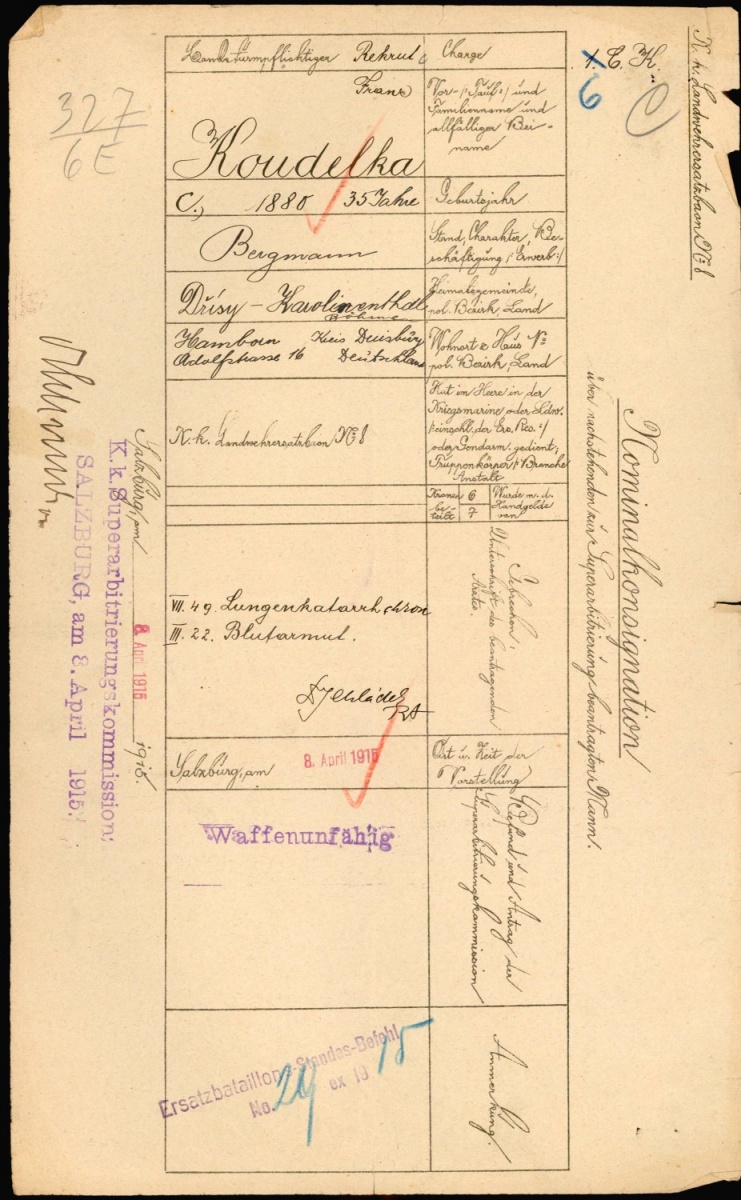 K. k. Landwehrersatzbaon No 8
Nominalkonsignation
über nachstehenden zur Superarbitrierung beantragten Mann.
Charge
Landsturmpflichtiger Rekrut
Vor- /:Tauf:/ und
Familienname und
allfälliger Bei-
name
Franz
Koudelka
Geburtsjahr
C., 1880 35 Jahre
Stand, Charakter, Be-
schäftigung /:Erwerb:/
Bergmann
Heimatsgemeinde,
pol. Bezirk, Land
Dřísy - Karolinenthal
Böhmen
Wohnort & Haus No
pol. Bezirk, Land
Hamborn Kreis Duisburg
Adolfstrasse 16 Deutschland
Hat im Heere in der
Kriegsmarine oder Ldw.
/:einschl. der Ers. Res.:/
oder Gendarm. gedient;
Truppenkörper /:Branche
Anstalt
K. k. Landwehrersatzbaon No 8
Kronen 6 Wurde m. d.
be- 7 Handgelde
teilt von
Gebrechen:
Unterschrift des beantragenden
Arztes.
VII. 49. Lungenkatarrh chron
III. 22. Blutarmut.
Ort u. Zeit der
Vorstellung
Salzburg, am 8. April 1915
Befund und Antrag der
Superarbitrierungskommission
Waffenunfähig
Anmerkung.
Ersatzbataillons-Standes-Befehl
No. 29 ex 1915
Salzburg, am 8. April 1915 1915.
K.k.Superarbitrierungskommission:
SALZBURG, am 8. April 1915.
327
6E